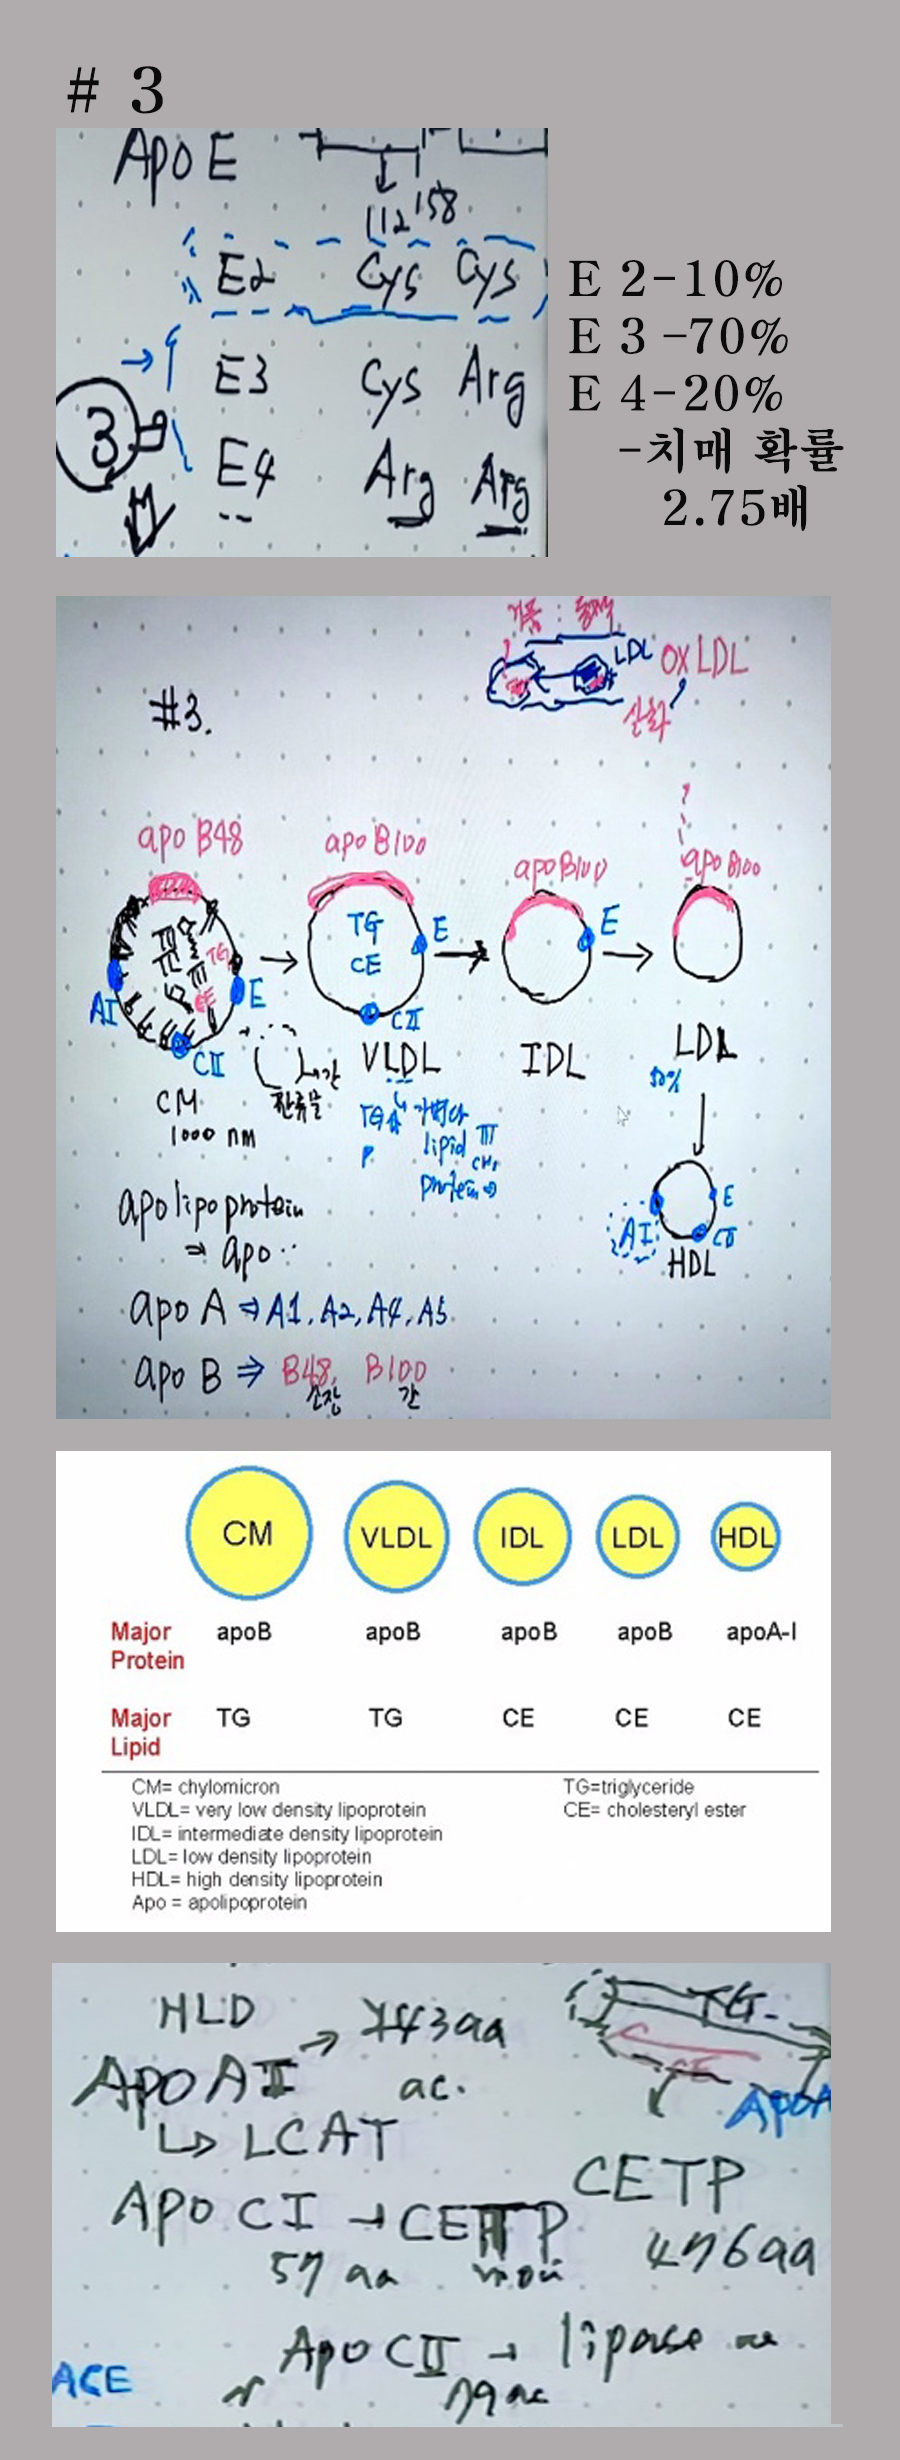 # 3
Apo E
112 158
E2 Cys Cys
E3 Cys Arg
3
E4 Arg Arg
E 2-10%
E 3 -70%
E 4-20%
-치매 확률
2.75배
#3.
LDL
OX LDL
산화
apo B48
apo B100
apo B100
apo B100
TG
CE
TG
CE
E
E
E
AI
CII
CII
CM
1000 nm
간
VLDL
IDL
LDL
50%
lipid
protein
E
AI
HDL
apolipoprotein
⇒ apo
apo A ⇒ A1, A2, A4, A5
apo B ⇒ B48, B100
소장 간
CM VLDL IDL LDL HDL
Major Protein apoB apoB apoB apoB apoA-I
Major Lipid TG TG CE CE CE
CM= chylomicron
VLDL= very low density lipoprotein
IDL= intermediate density lipoprotein
LDL= low density lipoprotein
HDL= high density lipoprotein
Apo = apolipoprotein
TG=triglyceride
CE= cholesteryl ester
HLD
243aa
TG
ac.
LCAT
CE
ApoA
CETP
476aa
Apo CI → CETP
57 aa
Apo CII → lipase
79
ACE